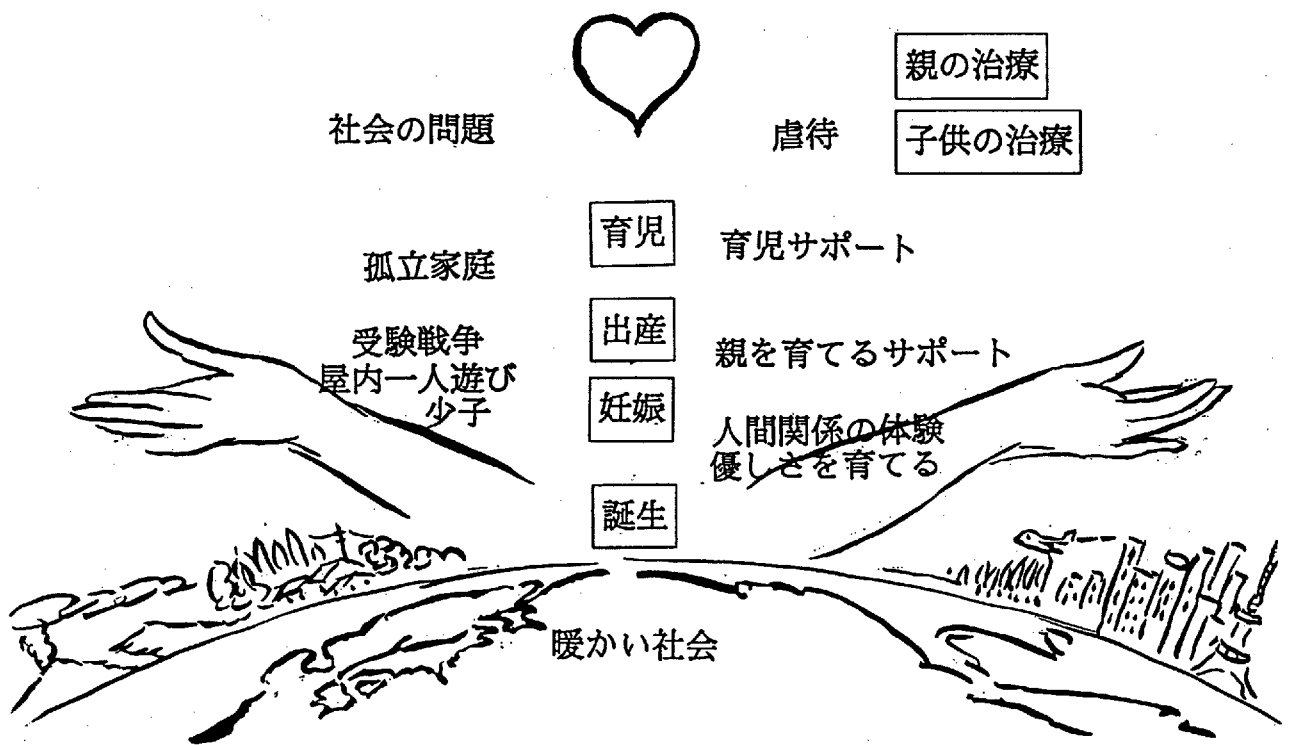 親の治療
社会の問題
虐待
子供の治療
育児
育児サポート
孤立家庭
出産
受験戦争
親を育てるサポート
屋内一人遊び
少子
妊娠
人間関係の体験
優しさを育てる
誕生
暖かい社会